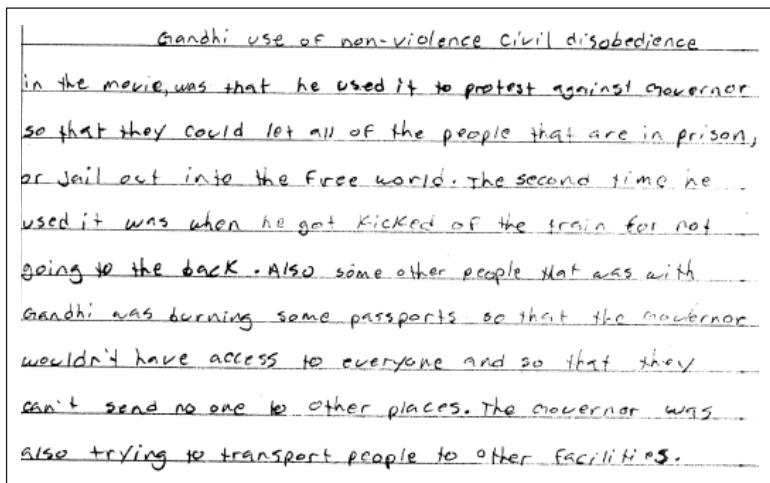 Gandhi use of non-violence civil disobedience
in the movie, was that he used it to protest against Governor
so that they could let all of the people that are in prison,
or Jail out into the free world. The second time he
used it was when he got kicked of the train for not
going to the back. Also some other people that was with
Gandhi was burning some passports so that the Governor
wouldn't have access to everyone and so that they
can't send no one to other places. The Governor was
also trying to transport people to other facilities.